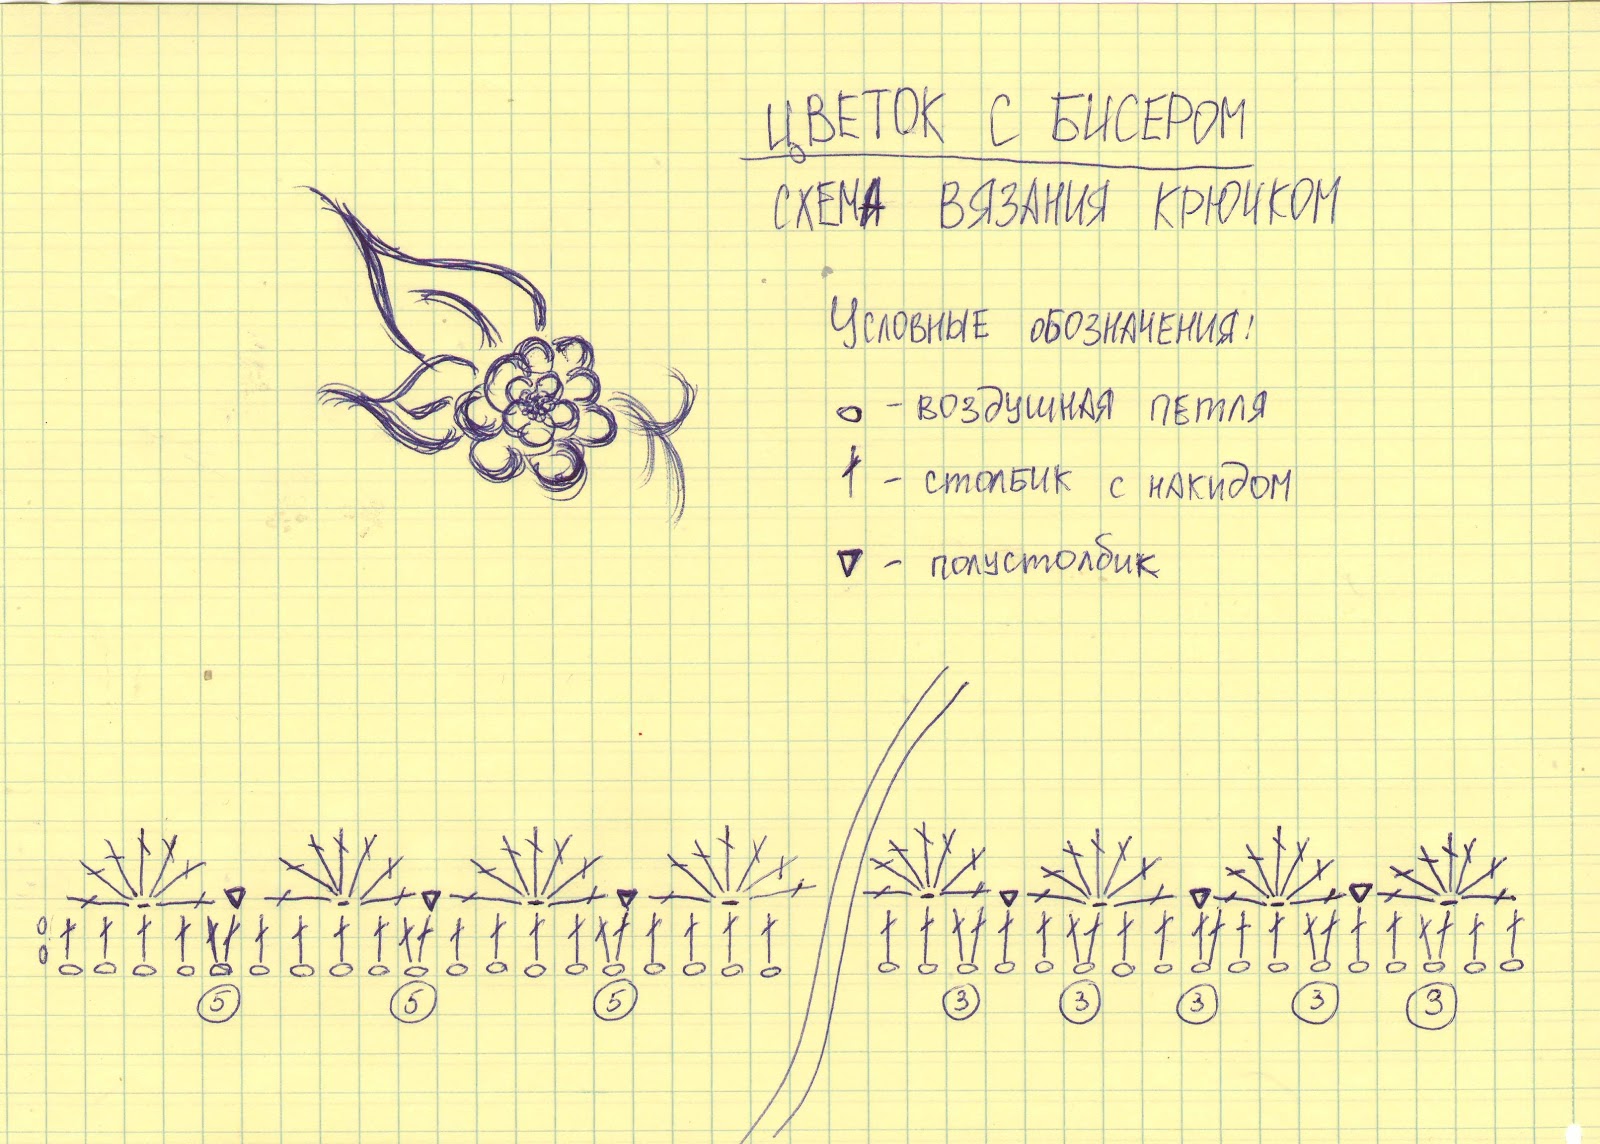 ЦВЕТОК С БИСЕРОМ
СХЕМА ВЯЗАНИЯ КРЮЧКОМ
Условные обозначения:
– воздушная петля
– столбик с накидом
– полустолбик
5 5 5 3 3 3 3 3